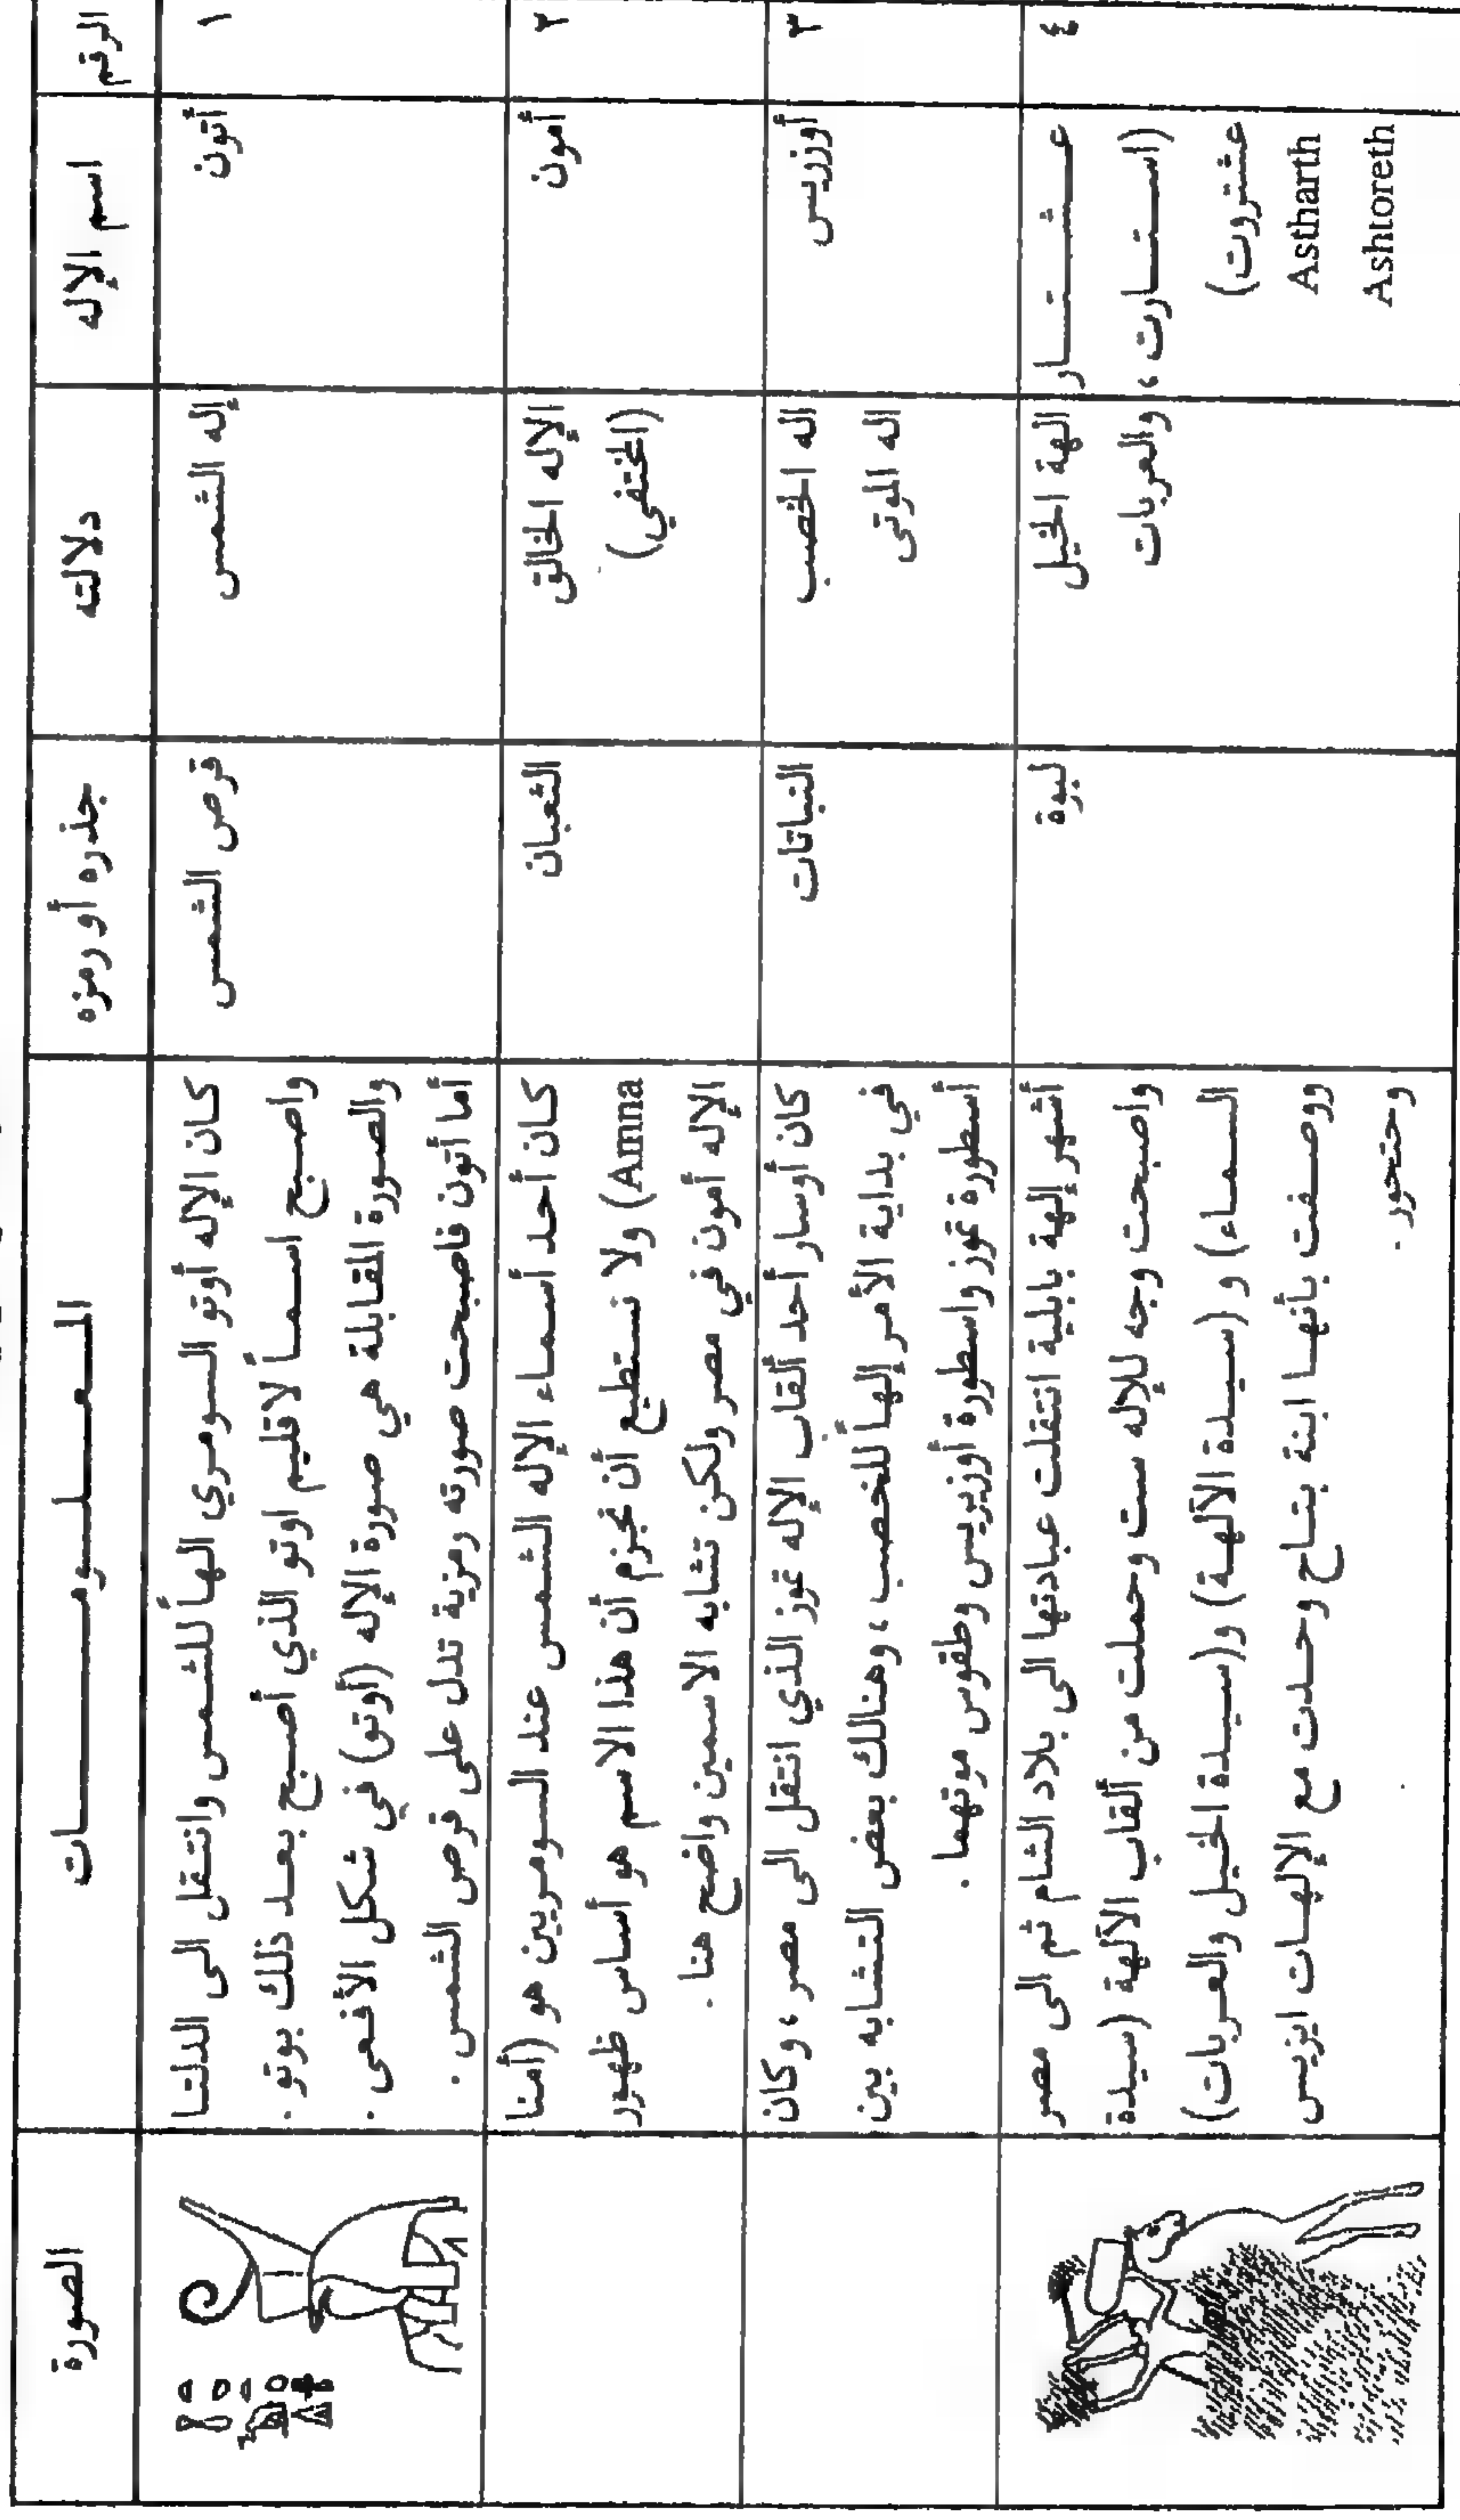 الرقم	اسم الإله	دلالته	جذره أو رمزه	المعلومات	الصورة
١
أتون
إله الشمس
قرص الشمس
كان الإله أوتو السومري الهاً للشمس وانتقل الى الدلتا
واصبح اسماً لاقليم اوتو الذي أصبح بعد ذلك بوتو .
والصورة المقابلة هي صورة الإله (أوتو) في شكل الأفعى .
أما أتون فاصبحت صورته رمزية تدل على قرص الشمس .
٢
أمون
الإله الخالق
(المختفي)
الثعبان
كان أحد أسماء الإله الشمس عند السومريين هو (أمنا
Amna) ولا نستطيع أن نجزم أن هذا الاسم هو أساس ظهور
الإله أمون في مصر ولكن تشابه الاسمين واضح هنا .
٣
أوزريس
اله الخصب
اله الموتى
النباتات
كان أوسار أحد ألقاب الإله تموز الذي انتقل الى مصر ، وكان
في بداية الأمر إلهاً للخصب ، وهنالك بعض التشابه بين
أسطورة تموز واسطورة أوزيريس وطقوس موتهما .
٤
عشتار
(استارت ،
عشتروت)
Astharth
Ashtoreth
الهة الخيل
والعربات
لبوة
أشهر إلهة بابلية انتقلت عبادتها الى بلاد الشام ثم الى مصر
واصبحت وجه للإله ست وحملت من ألقاب الآلهة (سيدة
السماء) و (سيدة الآلهة) و(سيدة الخيل والعربات)
ووصفت بأنها ابنة بتاح وحدت مع الإلهات ايزيس
وحتحور .